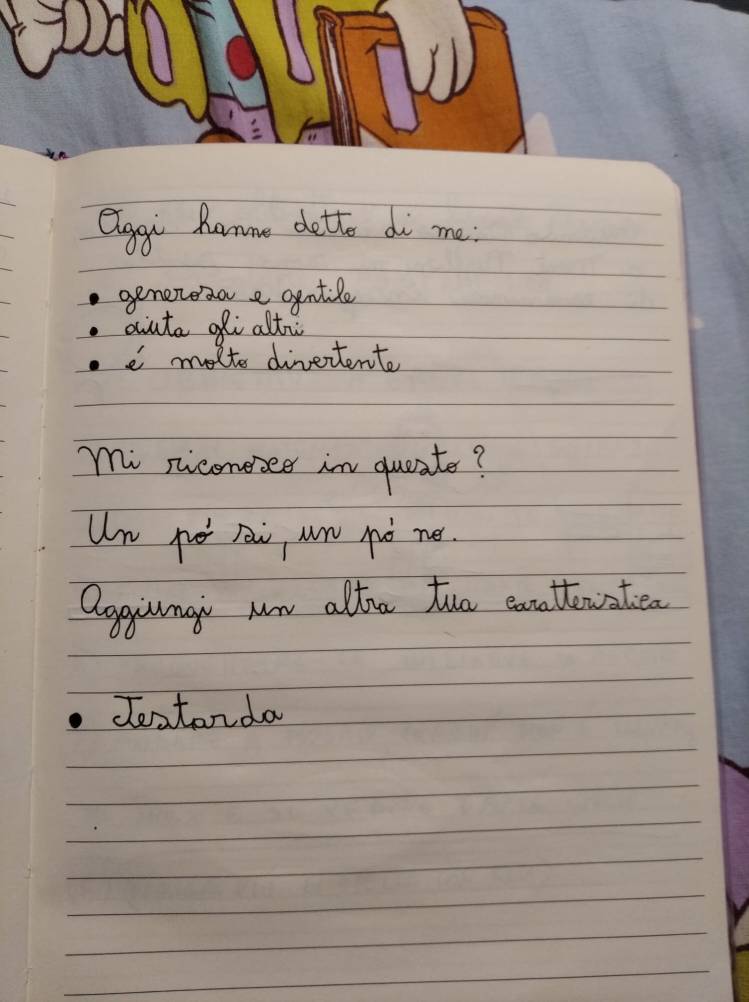 Oggi hanno detto di me:
• generosa e gentile
• aiuta gli altri
• é molto divertente
Mi riconosco in questo?
Un pó si, un pó no.
Aggiungi un altra tua caratteristica
• Testarda